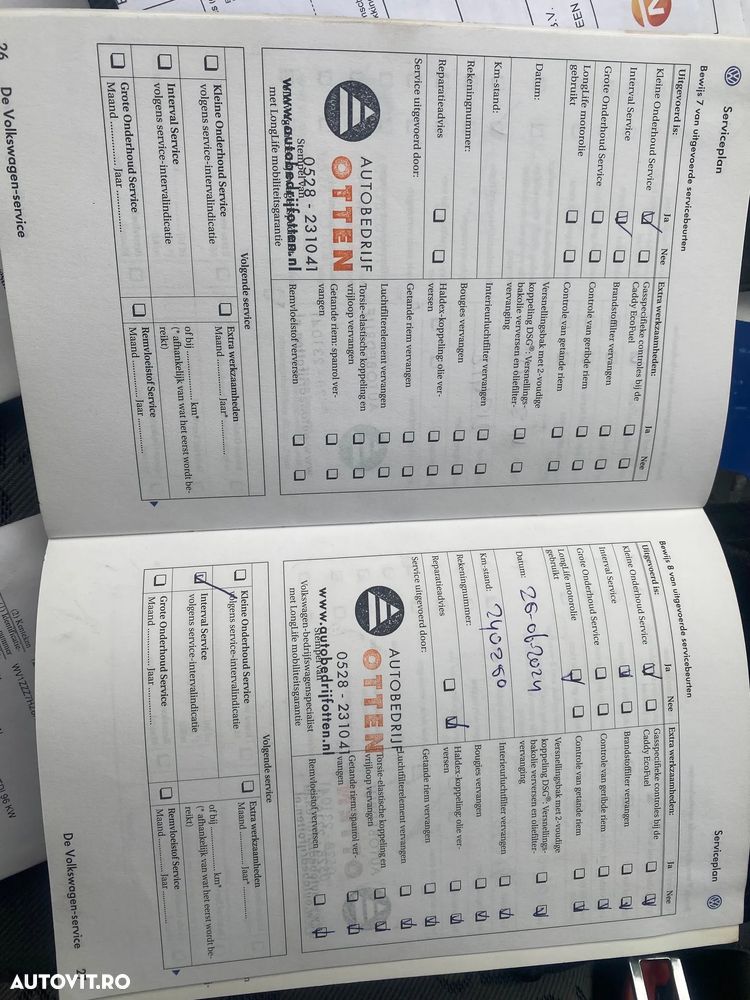 Serviceplan
Bewijs 7 van uitgevoerde servicebeurten
Uitgevoerd is:
Ja
Nee
Kleine Onderhoud Service
Interval Service
Grote Onderhoud Service
LongLife motorolie
gebruikt
Datum:
Km-stand:
Rekeningnummer:
Reparatieadvies
Service uitgevoerd door:
AUTOBEDRIJF
OTTEN
0528 - 231041
Stempel van
www.autobedrijfotten.nl
met LongLife mobiliteitsgarantie
Extra werkzaamheden:
Ja
Nee
Gasspecifieke controles bij de
Caddy EcoFuel
Brandstoffilter vervangen
Controle van geribde riem
Controle van getande riem
Versnellingsbak met 2-voudige
koppeling DSG®: Versnellings-
bakolie verversen en oliefilter-
vervanging
Interieurluchtfilter vervangen
Bougies vervangen
Haldex-koppeling: olie ver-
versen
Getande riem vervangen
Luchtfilterelement vervangen
Torsie-elastische koppeling en
vrijloop vervangen
Getande riem: spanrol ver-
vangen
Remvloeistof verversen
Volgende service
Kleine Onderhoud Service
volgens service-intervalindicatie
Interval Service
volgens service-intervalindicatie
Grote Onderhoud Service
Maand ............... Jaar ...............
Extra werkzaamheden
Maand ............... Jaar* ...............
of bij ............... km*
(* afhankelijk van wat het eerst wordt be-
reikt)
Remvloeistof Service
Maand ............... Jaar ...............
26
De Volkswagen-service
Serviceplan
Bewijs 8 van uitgevoerde servicebeurten
Uitgevoerd is:
Ja
Nee
Kleine Onderhoud Service
Interval Service
Grote Onderhoud Service
LongLife motorolie
gebruikt
Datum: 26-06-2024
Km-stand: 240280
Rekeningnummer:
Reparatieadvies
Service uitgevoerd door:
AUTOBEDRIJF
OTTEN
0528 - 231041
Stempel van
www.autobedrijfotten.nl
Volkswagen-bedrijfswagenspecialist
met LongLife mobiliteitsgarantie
Extra werkzaamheden:
Ja
Nee
Gasspecifieke controles bij de
Caddy EcoFuel
Brandstoffilter vervangen
Controle van geribde riem
Controle van getande riem
Versnellingsbak met 2-voudige
koppeling DSG®: Versnellings-
bakolie verversen en oliefilter-
vervanging
Interieurluchtfilter vervangen
Bougies vervangen
Haldex-koppeling: olie ver-
versen
Getande riem vervangen
Luchtfilterelement vervangen
Torsie-elastische koppeling en
vrijloop vervangen
Getande riem: spanrol ver-
vangen
Remvloeistof verversen
Volgende service
Kleine Onderhoud Service
volgens service-intervalindicatie
Interval Service
volgens service-intervalindicatie
Grote Onderhoud Service
Maand ............... Jaar ...............
Extra werkzaamheden
Maand ............... Jaar* ...............
of bij ............... km*
(* afhankelijk van wat het eerst wordt be-
reikt)
Remvloeistof Service
Maand ............... Jaar ...............
De Volkswagen-service
96 KW
AUTOVIT.RO